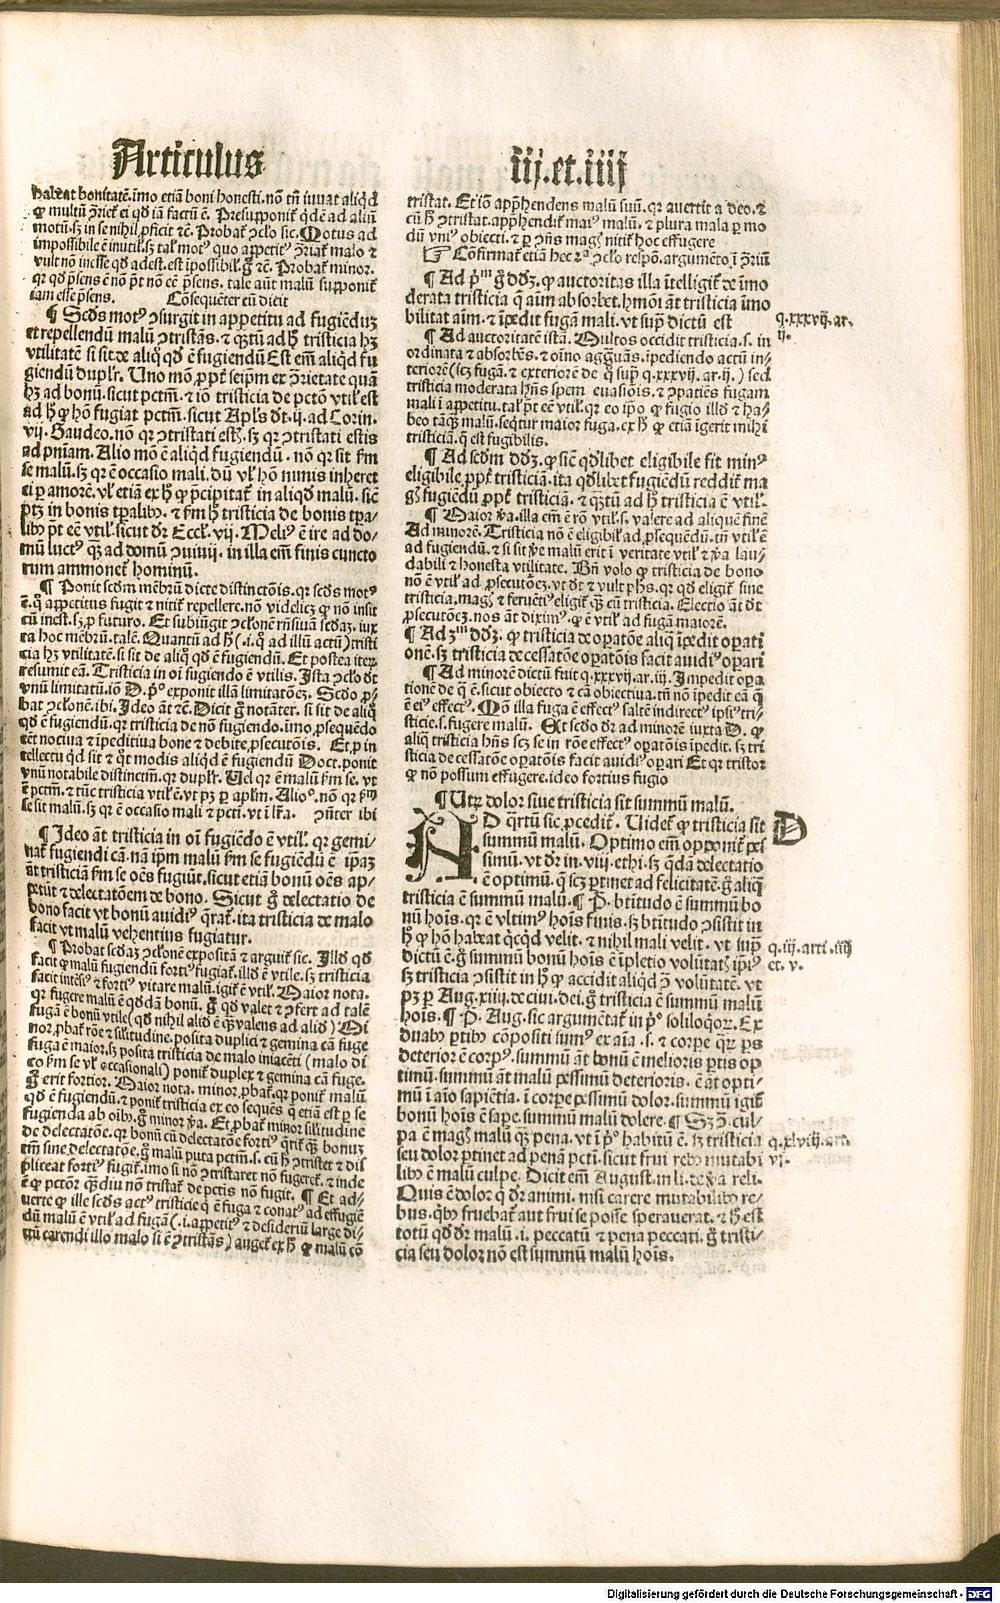 Articulus
iij.et.iiij
habeat bonitatē.īmo etiā boni honesti.nō tn̄ iuuat aliq̄d
ꝙ multū ꝯrīet̄ ei qđ iā factū ē. Presupponit̄ qdē ad aliū
motū.sꝫ in se nihil ꝓficit ꝛc̄. Probat̄ ꝯclo sic. Motus ad
impossibile ē inutil̄.sꝫ tal̄ motꝰ quo appetitꝰ ꝯriat̄ malo ⁊
vult nō inesse qđ adest.est īpossibil̄.g̊ ꝛc̄. Probat̄ minor.
qr qđ p̄sens ē nō pōt nō eē p̄sens. tale aūt malū supponit̄
iam esse p̄sens.
Cōsequēter cū dicit
¶ Scđs motꝰ ꝯsurgit in appetitu ad fugiēduꝫ
et repellendū malū ꝯtristās.⁊ qꝫtū ad h̄ tristicia hꝫ
vtilitatē si sit de aliq̊ qđ ē fugiendū Est em̄ aliqđ fu
giendū duplr. Uno mō ꝓpt̄ seipm̄ ex ꝯrietate quā
hꝫ ad bonū.sicut pctm̄.⁊ iō tristicia de pctō vtil̄ est
ad h̄ ꝙ hō fugiat pctm̄.sicut Apl̄s dt̄.ij.ad Corin.
vij. Gaudeo.nō qr ꝯtristati estis.sꝫ qr ꝯtristati estis
ad pniam. Alio mō ē aliqđ fugiendū. nō qr sit ẜm
se malū.sꝫ qr ē occasio mali.dū vl̄ hō nimis inheret
ei ꝑ amorē.vl̄ etiā ex h̄ ꝙ p̄cipitat̄ in aliqđ malū. sic̄
ptꝫ in bonis tꝑalibꝰ.⁊ ẜm h̄ tristicia de bonis tꝑa-
libꝰ pōt eē vtil̄.sicut dr̄ Eccl̄.vij. Meliꝰ ē ire ad do-
mū luctꝰ qꝫ ad domū ꝯuiuij.in illa em̄ finis cuncto
rum ammonet̄ hominū.
¶ Ponit scđm mēbrū dicte distinctōis.qr scđs motꝰ
ē.q̊ appetitus fugit ⁊ nitit̄ repellere.nō videlicꝫ ꝙ nō insit
cū inest.sꝫ ꝓ futuro. Et subiūgit ꝯclonē rn̄siuā scđaꝫ.iux
ta hoc mēbrū.talē. Quantū ad h̄ (.i.q̊ ad illū actū) tristi
cia hꝫ vtilitatē.si sit de aliq̊ qđ ē fugiendū. Et postea iteꝝ
resumit eā. Tristicia in oī fugiendo ē vtilis. Ista ꝯclo dt̄
vnū limitatū.iō D.p̊ exponit illā limitatōeꝫ. Scđo ꝓ-
bat ꝯclonē.ibi. Ideo āt ꝛc̄. Dicit g̊ notāter. si sit de aliq̊
qđ ē fugiendū.qr tristicia de nō fugiendo.īmo ꝓsequēdo
eēt nociua ⁊ īpeditiua bone ⁊ debite ꝓsecutōis. Et ꝓ in
tellectu qđ sit ⁊ q̊t modis aliqđ ē fugiendū Doct.ponit
vnū notabile distinctm̄.qr duplr. Uel qr ē malū ẜm se.vt
ē pctm̄.⁊ tūc tristicia vtil̄ ē.vt pꝫ ꝑ apl̄m. Alio°.nō qr ẜm
se sit malū.sꝫ qr ē occasio mali ⁊ pcti.vt ī lr̄a. ꝯn̄ter ibi
¶ Ideo āt tristicia in oī fugiēdo ē vtil̄. qr gemi-
nat̄ fugiendi cā.nā ip̄m malū ẜm se fugiēdū ē ipaꝫ
āt tristiciā ẜm se oēs fugiūt.sicut etiā bonū oēs ap-
petūt ⁊ delectatōem de bono. Sicut g̊ delectatio de
bono facit vt bonū auidiꝰ q̄rat̄.ita tristicia de malo
facit vt malū vehentius fugiatur.
¶ Probat scđaꝫ ꝯclonē expositā ⁊ arguit̄ sic. Illđ qđ
facit ꝙ malū fugiendū fortiꝰ fugiat̄.illđ ē vtile.sꝫ tristicia
facit intēsiꝰ ⁊ fortiꝰ vitare malū.igit̄ ē vtil̄. Maior nota.
qr fugere malū ē qđdā bonū.g̊ qđ valet ⁊ ꝯfert ad talē
fugā ē bonū vtile (qđ nihil aliđ ē qꝫ valens ad aliđ) Mi
nor.ꝓbat̄ rōe ⁊ silitudine.posita duplici ⁊ gemina cā fuge
fuga ē maior.sꝫ posita tristicia de malo iniacēti (malo di
co ẜm se vl̄ occasionali) ponit̄ duplex ⁊ gemina cā fuge.
g̊ erit fortior. Maior nota. minor.ꝓbat̄.qr ponit̄ malū
qđ ē fugiendū.⁊ ponit̄ tristicia ex eo seques q̄ etiā est ꝑ se
fugienda ab oibꝰ.g̊ minor ꝟa. Et ꝓbat̄ minor silitudine
de delectatōe.qr bonū cū delectatōe fortiꝰ q̄rit̄ qꝫ bonuꝫ
tm̄ sine delectatōe.g̊ malū puta pctm̄.s.cū h̄ ꝯtristet ⁊ dis
pliceat fortiꝰ fugit̄.imo si nō ꝯtristaret nō fugeret̄.⁊ inde
ē ꝙ pctōr qꝫdiu nō tristat̄ de pctis nō fugit. ¶ Et ad-
uerte ꝙ ille scđs actꝰ tristicie q̄ ē fuga ⁊ conatꝰ ad effugiē
dū malū ē vtil̄ ad fugā (.i.appetitꝰ ⁊ desideriū large di-
ctū carendi illo malo si ē ꝯtristās) auget̄ ex h̄ ꝙ malū cō
tristat. Et iō app̄hendens malū suū.qr auertit a deo.⁊
cū h̄ ꝯtristat.app̄hendit̄ maiꝰ malū.⁊ plura mala ꝑ mo
dū vniꝰ obiecti.⁊ ꝑ ꝯn̄s magꝭ nitit̄ hoc effugere
☞ Cōfirmat̄ etiā hec 2ª ꝯclo respō.argumēto ī ꝯriū
¶ Ad p̄ᵐ g̊ dđꝫ.ꝙ auctoritas illa ītelligit̄ de īmo
derata tristicia q̄ aīm absorbet.hmōi āt tristicia īmo
bilitat aīm.⁊ īpedit fugā mali.vt supͣ dictū est
q.xxxvij.ar.
ij.
¶ Ad auctoritatē istā. Multos occidit tristicia.s. in
ordinata ⁊ absorbēs.⁊ oīno aggͣuās.īpediendo actū in-
teriorē (scꝫ fugā.⁊ exteriorē de q̊ supͣ q.xxxvij.ar.ij.) sed
tristicia moderata hn̄s spem euasiōis.⁊ ꝯpatiēs fugam
mali ī appetitu.tal̄ pōt eē vtil̄.qr eo ip̄o ꝙ fugio illđ ⁊ ha-
beo tāqꝫ malū.seqtur maior fuga.ex h̄ ꝙ etiā īgerit mihi
tristiciā.q̄ est fugibilis.
¶ Ad scđm dđꝫ.ꝙ sic̄ qđlibet eligibile fit minꝰ
eligibile ꝓpt̄ tristiciā.ita qđlibet fugiēdū reddit̄ ma
gꝭ fugiēdū ꝓpt̄ tristiciā.⁊ qꝫtū ad h̄ tristicia ē vtil̄.
¶ Maior ꝟa.illa em̄ ē rō vtil̄.s.valere ad aliquē finē
Ad minorē. Tristicia nō ē eligibil̄ ad ꝓsequēdū.tn̄ vtil̄ ē
ad fugiendū.⁊ si sit ꝟe malū erit ī veritate vtil̄ ⁊ ꝟa lau-
dabili ⁊ honesta vtilitate. Bn̄ volo ꝙ tristicia de bono
nō ē vtil̄ ad ꝓsecutōeꝫ.vt dt̄ ⁊ vult phs.qr qđ eligit̄ sine
tristicia.magꝭ ⁊ feruētiꝰ eligit̄ qꝫ cū tristicia. Electio āt dt̄
ꝓsecutōeꝫ.nos āt diximꝰ.ꝙ ē vtil̄ ad fugā maiorē.
¶ Ad 3ᵐ dđꝫ. ꝙ tristicia de oꝑatōe aliq̄ īpedit oꝑati
onē.sꝫ tristicia de cessatōe oꝑatōis facit auidiꝰ oꝑari
¶ Ad minorē dictū fuit q.xxxvij.ar.iij. Impedit oꝑa
tionē de q̄ ē.sicut obiecto ⁊ cā obiectiua.tn̄ nō īpedit eā q̄
ē eiꝰ effectꝰ. Mō illa fuga ē effectꝰ saltē indirectꝰ ip̄iꝰ tri-
sticie.s.fugere malū. Et scđo dr̄ ad minorē iuxta D. ꝙ
aliq̄ tristicia hn̄s scꝫ se in rōe effectꝰ oꝑatōis īpedit.sꝫ tri
sticia de cessatōe oꝑatōis facit auidiꝰ oꝑari Et qr tristor
ꝙ nō possum effugere.ideo fortius fugio
¶ Utꝝ dolor siue tristicia sit summū malū.
AD q̄rtū sic ꝓcedit̄. Uidet̄ ꝙ tristicia sit
D
summū malū. Optimo em̄ opponit̄ pes
simū.vt dr̄ in.viij.ethi.sꝫ q̄dā delectatio
ē optimū.q̄ scꝫ ꝑtinet ad felicitatē.g̊ aliq̄
tristicia ē summū malū.¶ P. btitudo ē summū bo
nū hoīs.qr ē vltimꝰ hoīs finis.sꝫ btitudo ꝯsistit in
h̄ ꝙ hō habeat qcqđ velit.⁊ nihil mali velit. vt supͣ
q.iij.arti.iiij
dictū ē.g̊ summū bonū hoīs ē īpletio volūtatꝭ ip̄iꝰ
et.v.
sꝫ tristicia ꝯsistit in h̄ ꝙ accidit aliqđ ꝯ volūtatē. vt
pꝫ ꝑ Aug.xiiij.de ciui.dei.g̊ tristicia ē summū malū
hoīs.¶ P. Aug.sic argumētat̄ in p̊ soliloq̊ꝝ. Ex
duabꝰ ꝑtibꝰ cōpositi sumꝰ ex aīa .s.⁊ corꝑe qꝝ ps
deterior ē corpꝰ.summū āt bonū ē melioris ꝑtis op
timū.summū āt malū pessimū deterioris. ē āt opti-
mū ī aīo sapiētia.ī corꝑe pessimū dolor.summū igit̄
bonū hoīs ē sape.summū malū dolere.¶ Sꝫ ꝯ.cul-
pa ē magꝭ malū qꝫ pena.vt ī p̊ habitū ē.sꝫ tristicia
q.xlviij.ar.
seu dolor ꝑtinet ad penā pcti.sicut frui rebꝰ mutabi
vj.
libꝰ ē malū culpe. Dicit em̄ August.in li.de ꝟa reli.
Quis ē dolor q dr̄ animi. nisi carere mutabilibꝰ re-
bus.qbꝰ fruebat̄ aut frui se posse sperauerat.⁊ h̄ est
totū qđ dr̄ malū.i. peccatū ⁊ pena peccati.g̊ tristi-
cia seu dolor nō est summū malū hoīs.
Digitalisierung gefördert durch die Deutsche Forschungsgemeinschaft - DFG